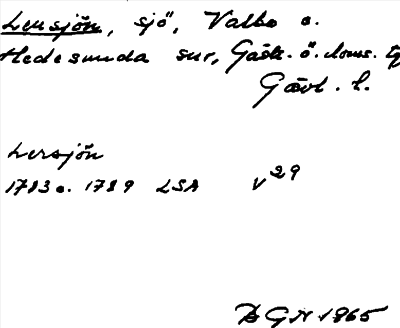 Lersjön, sjö, Valbo o.
Hedesunda snr, Gästr. ö. doms. tg
Gävl. l.
Lersjön
1783 o. 1789 LSA V29
GN 1965